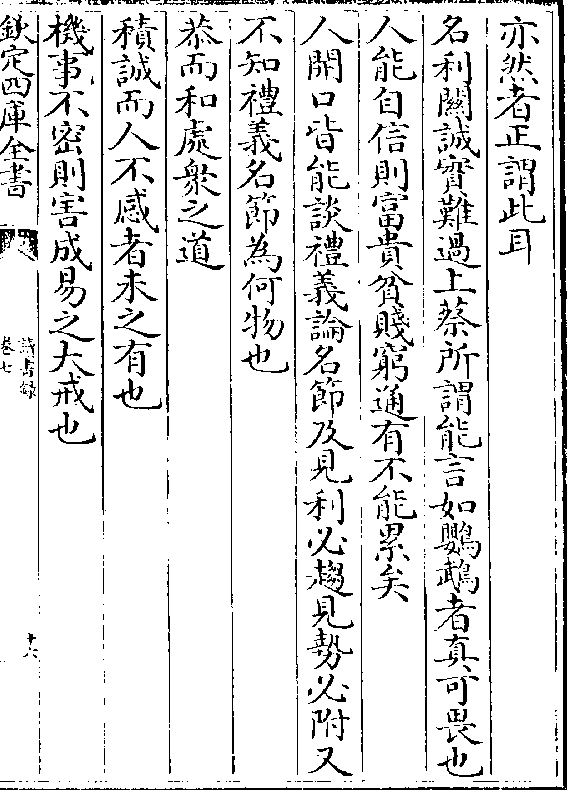 亦然者正謂此耳
名利關誠實難過上蔡所謂能言如鸚鵡者真可畏也
人能自信則富貴貧賤窮通有不能累矣
人開口皆能談禮義論名節及見利必趨見勢必附又
不知禮義名節為何物也
恭而和處衆之道
積誠而人不感者未之有也
機事不密則害成易之大戒也
欽定四庫全書
讀書録
卷七
十六